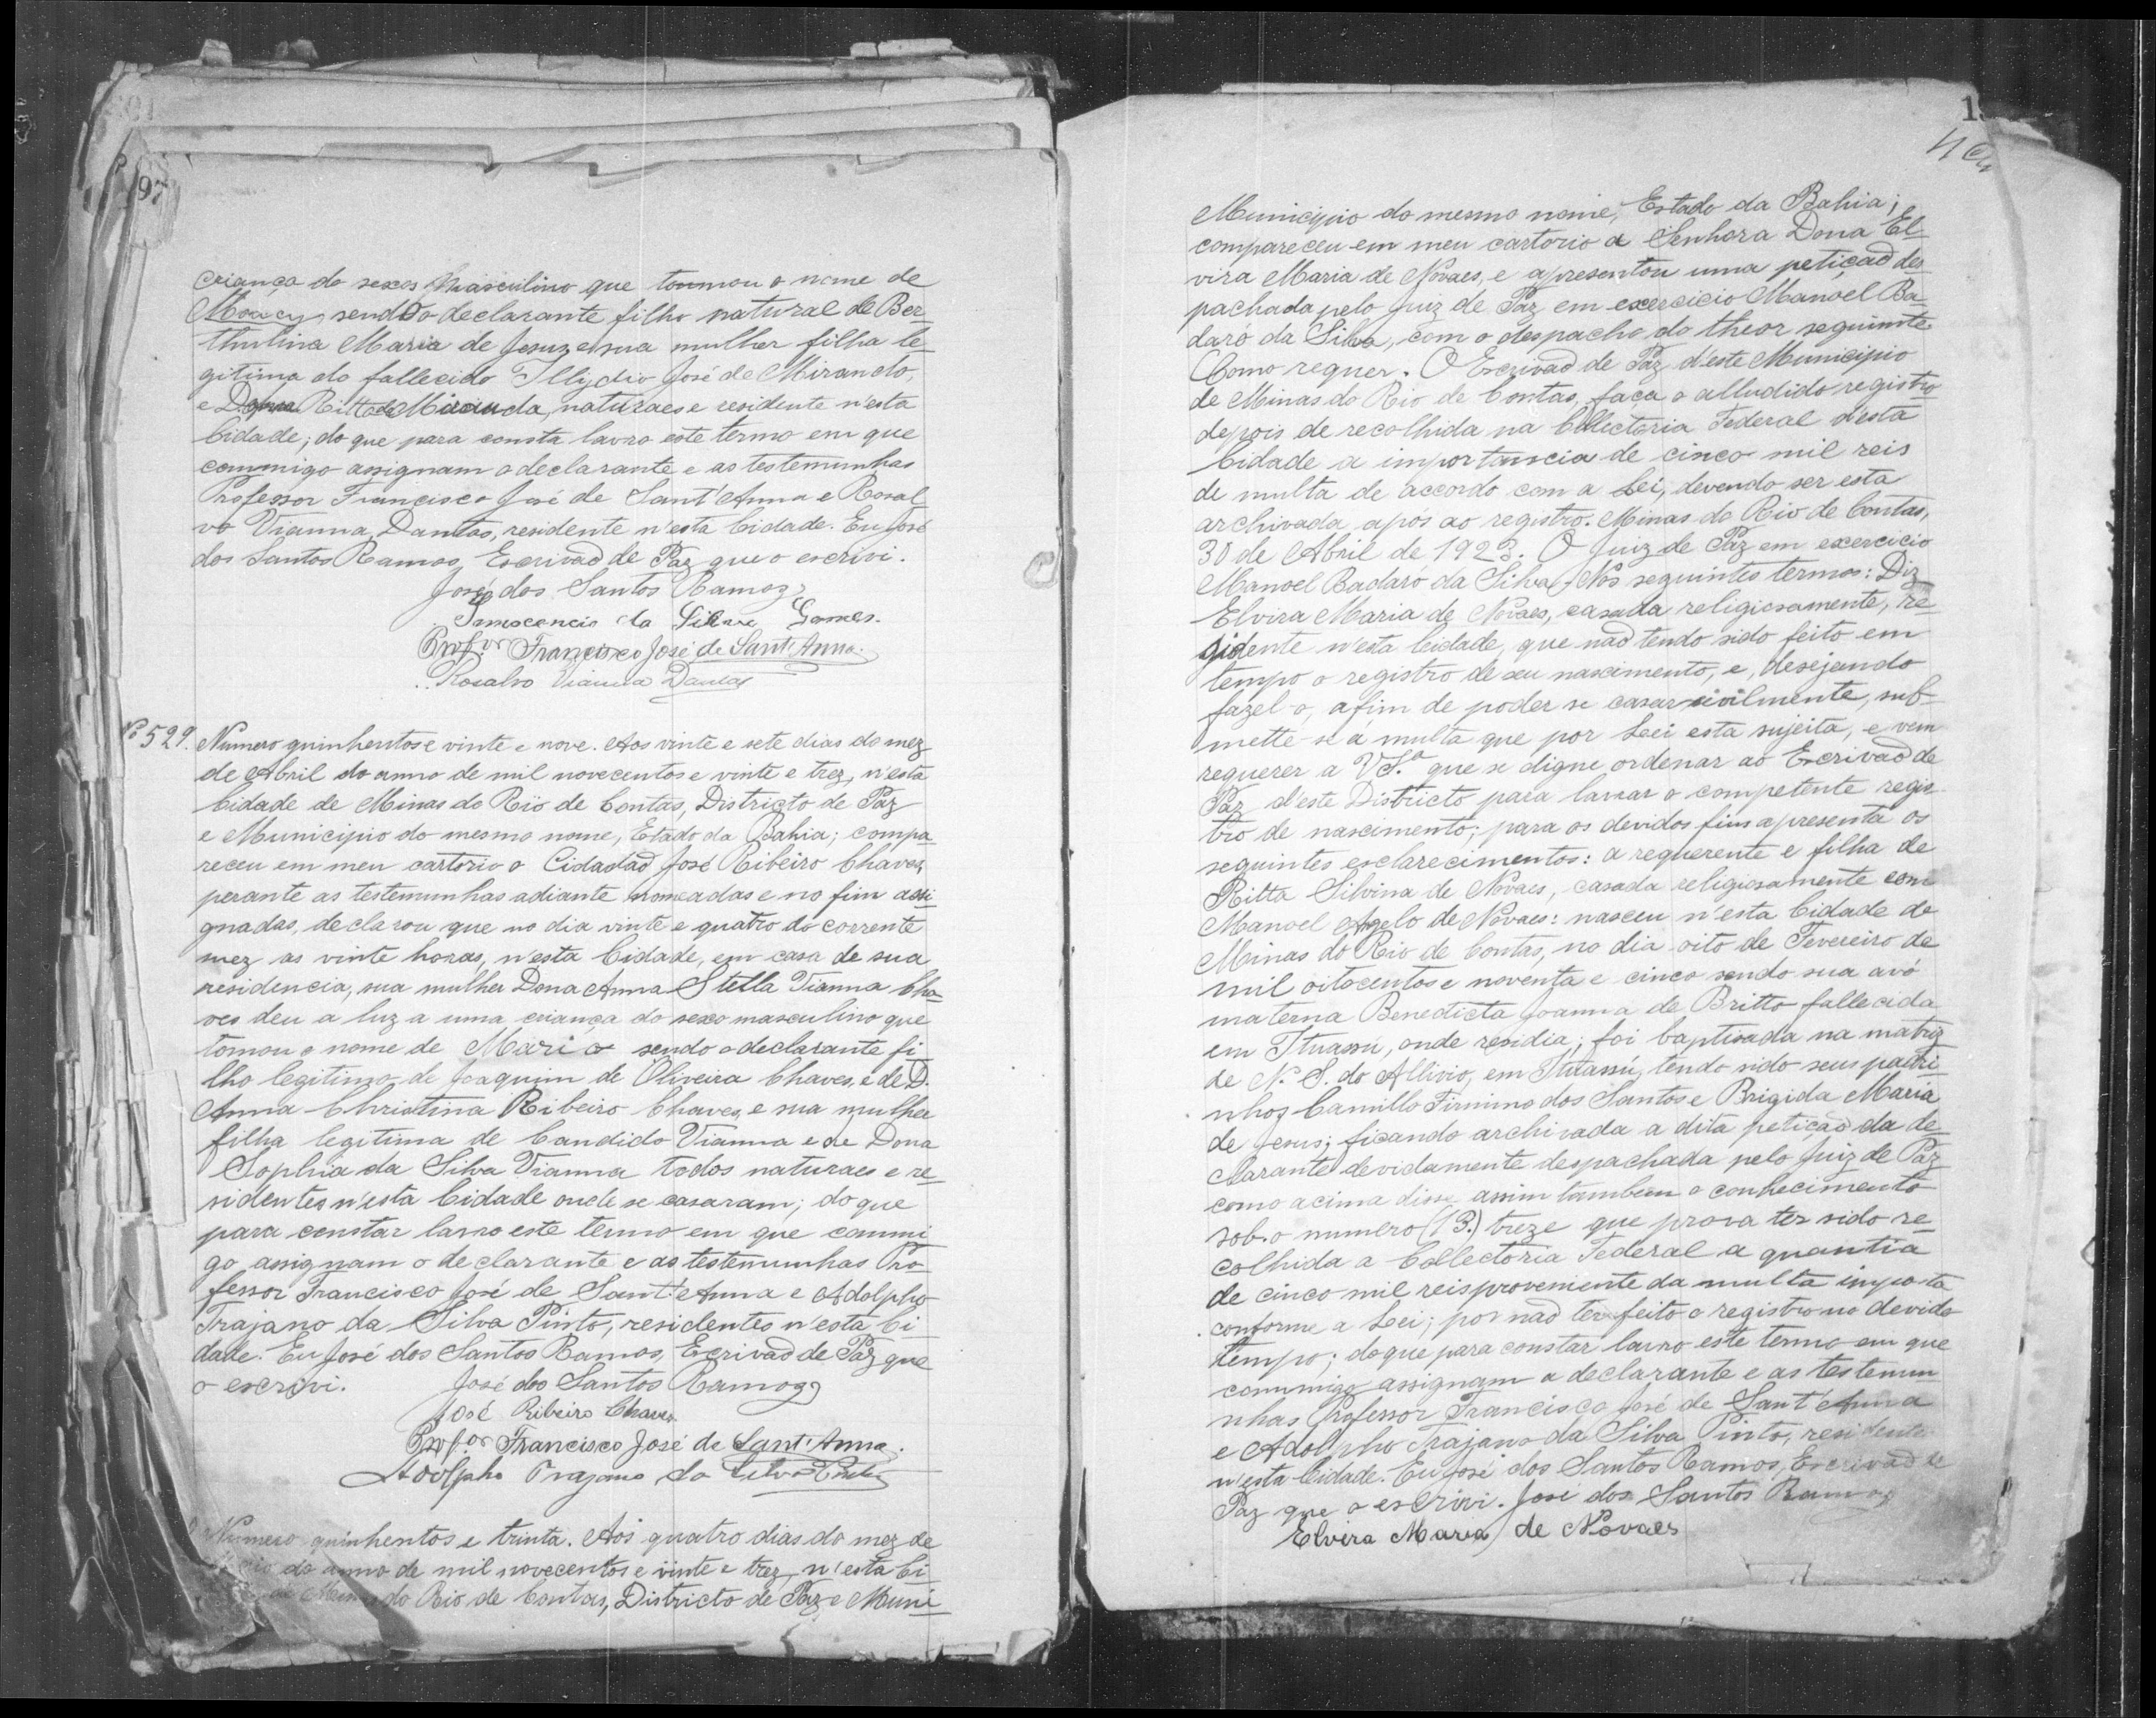 97
criança do sexos Masculino que tommou o nome de
Moacy, sendo o declarante filho natural de Ber-
thulina Maria de Jesuz e sua mulher filha le-
gitima do fallecido Illydio José de Miranda,
e Donna Ritta de Miranda, naturaes e residente n'esta
Cidade; do que para consta lavro este termo em que
commigo assignam o declarante e as testemunhas
Professor Francisco José de Sant'Anna e Rosal-
vo Vianna Dantas, residente n'esta Cidade. Eu José
dos Santos Ramos, Escrivaõ de Paz que o escrivi.
José dos Santos Ramos
Innocencio da Silva Gomes.
Prof.or Francisco José de Sant'Anna.
Rosalvo Vianna Dantas
Nº 529. Numero quinhentos e vinte e nove. Aos vinte e sete dias do mez
de Abril do anno de mil novecentos e vinte e trez, n'esta
Cidade de Minas do Rio de Contas, Districto de Paz
e Municipio do mesmo nome, Estado da Bahia; compa-
receu em meu cartorio o Cidadaõ José Ribeiro Chaves,
perante as testemunhas adiante nomeadas e no fim assi-
gnadas, declarou que no dia vinte e quatro do corrente
mez as vinte horas, n'esta Cidade, em casa de sua
residencia, sua mulher Dona Anna Stella Vianna Cha-
ves deu a luz a uma criança do sexo masculino que
tomou o nome de Mario sendo o declarante fi-
lho legitimo de Joaquim de Oliveira Chaves, e de D.
Anna Christina Ribeiro Chaves, e sua mulher
filha legitima de Candido Vianna e de Dona
Sophia da Silva Vianna todos naturaes e re-
sidentes n'esta Cidade onde se casaram; do que
para constar lavro este termo em que commi-
go assignam o declarante e as testemunhas Pro-
fessor Francisco José de Sant'Anna e Adolpho
Trajano da Silva Pinto, residentes n'esta Ci-
dade. Eu José dos Santos Ramos, Escrivaõ de Paz que
o escrivi. José dos Santos Ramos
José Ribeiro Chaves.
Prof.or Francisco José de Sant'Anna.
Adolpho Trajano da Silva Pinto
Numero quinhentos e trinta. Aos quatro dias do mez de
do anno de mil novecentos e vinte e trez, n'esta Ci-
de Minas do Rio de Contas, Districto de Paz e Muni-
Municipio do mesmo nome, Estado da Bahia;
compareceu em meu cartorio a Senhora Dona El-
vira Maria de Novaes, e apresentou uma petiçaõ des-
pachada pelo Juiz de Paz em exercicio Manoel Ba-
daró da Silva, com o despacho do theor seguinte
Como requer. O Escrivaõ de Paz d'este Municipio
de Minas do Rio de Contas, faca o alludido registro
depois de recolhida na Collectoria Federal d'esta
Cidade a importancia de cinco mil reis
de multa de accordo com a Lei, devendo ser esta
archivada após ao registro. Minas do Rio de Contas,
30 de Abril de 1923. O Juiz de Paz em exercicio
Manoel Badaró da Silva. Nos seguintes termos: Diz
Elvira Maria de Novaes, casada religiosamente, re-
sidente n'esta Cidade, que naõ tendo sido feito em
tempo o registro de seu nascimento, e, desejando
fazel-o, afim de poder se casar civilmente, sub-
mette-se á multa que por Lei esta sujeita, e vem
requerer a V S.ª que se digne ordenar ao Escrivaõ de
Paz d'este Districto para lavrar o competente regis-
tro de nascimento; para os devidos fins apresenta os
seguintes esclarecimentos: a requerente e filha de
Ritta Silvina de Novaes, casada religiosamente com
Manoel Agelo de Novaes: nasceu n'esta Cidade de
Minas do Rio de Contas, no dia oito de Fevereiro de
mil oitocentos e noventa e cinco sendo sua avó
materna Benedicta Joanna de Britto fallecida
em Ituassú, onde residia; foi baptisada na matriz
de N. S. do Allivio, em Ituassú, tendo sido seus padri-
nhos Camillo Firmino dos Santos e Brigida Maria
de Jesus; ficando archivada a dita petiçaõ da de-
clarante devidamente despachada pelo Juiz de Paz
como acima disse, assim tambem o conhecimento
sob. o numero (13.) treze que prova ter sido re-
colhida a Collectoria Federal a quantia
de cinco mil reis proveniente da multa imposta
conforme a Lei; por naõ ter feito o registro no devido
tempo; do que para constar lavro este termo em que
commigo assignam a declarante e as testemu-
nhas Professor Francisco José de Sant'Anna
e Adolpho Trajano da Silva Pinto, residente
n'esta Cidade. Eu José dos Santos Ramos, Escrivaõ de
Paz que o escrivi. José dos Santos Ramos
Elvira Maria de Novaes